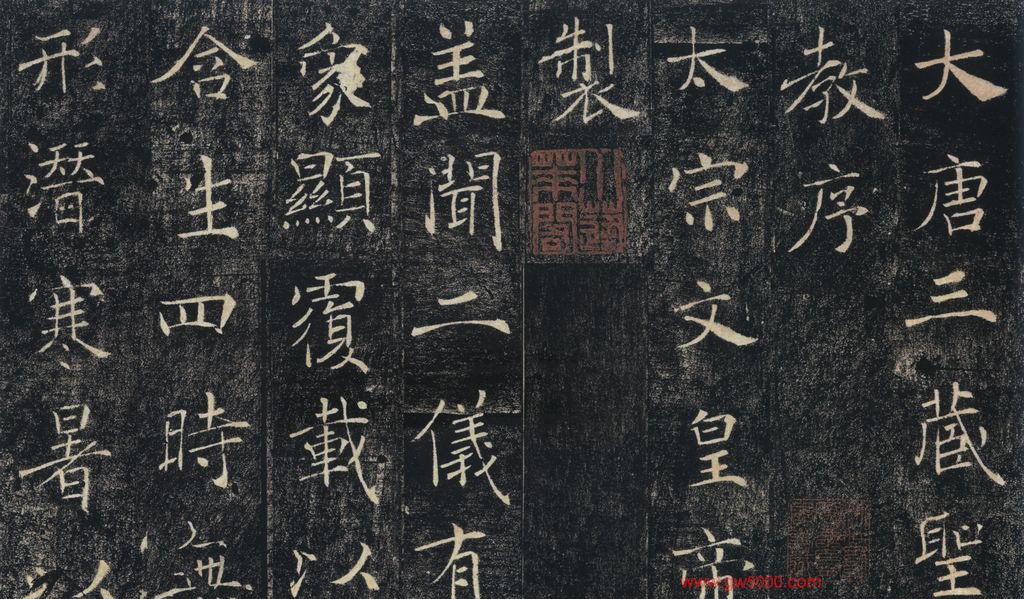 大唐三藏聖
教序
太宗文皇帝
製
盖聞二儀有
象顯覆載以
含生四時無
形潛寒暑以
www.gw5000.com